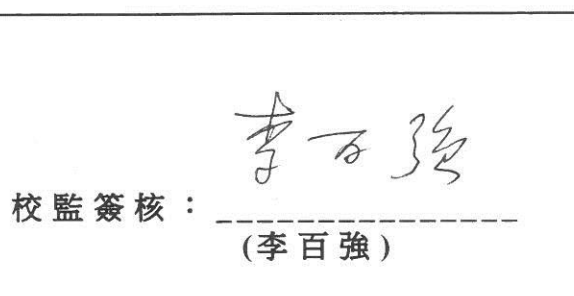 李百強
校監簽核：
(李百強)